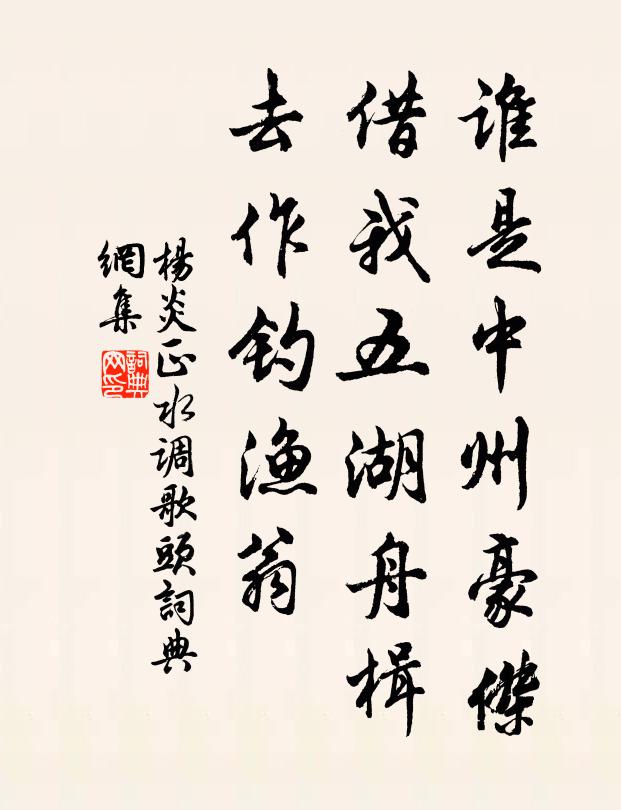 誰是中州豪傑
借我五湖舟楫
去作釣漁翁
楊炎正水调歌頭詞典
網集
詞典
网印